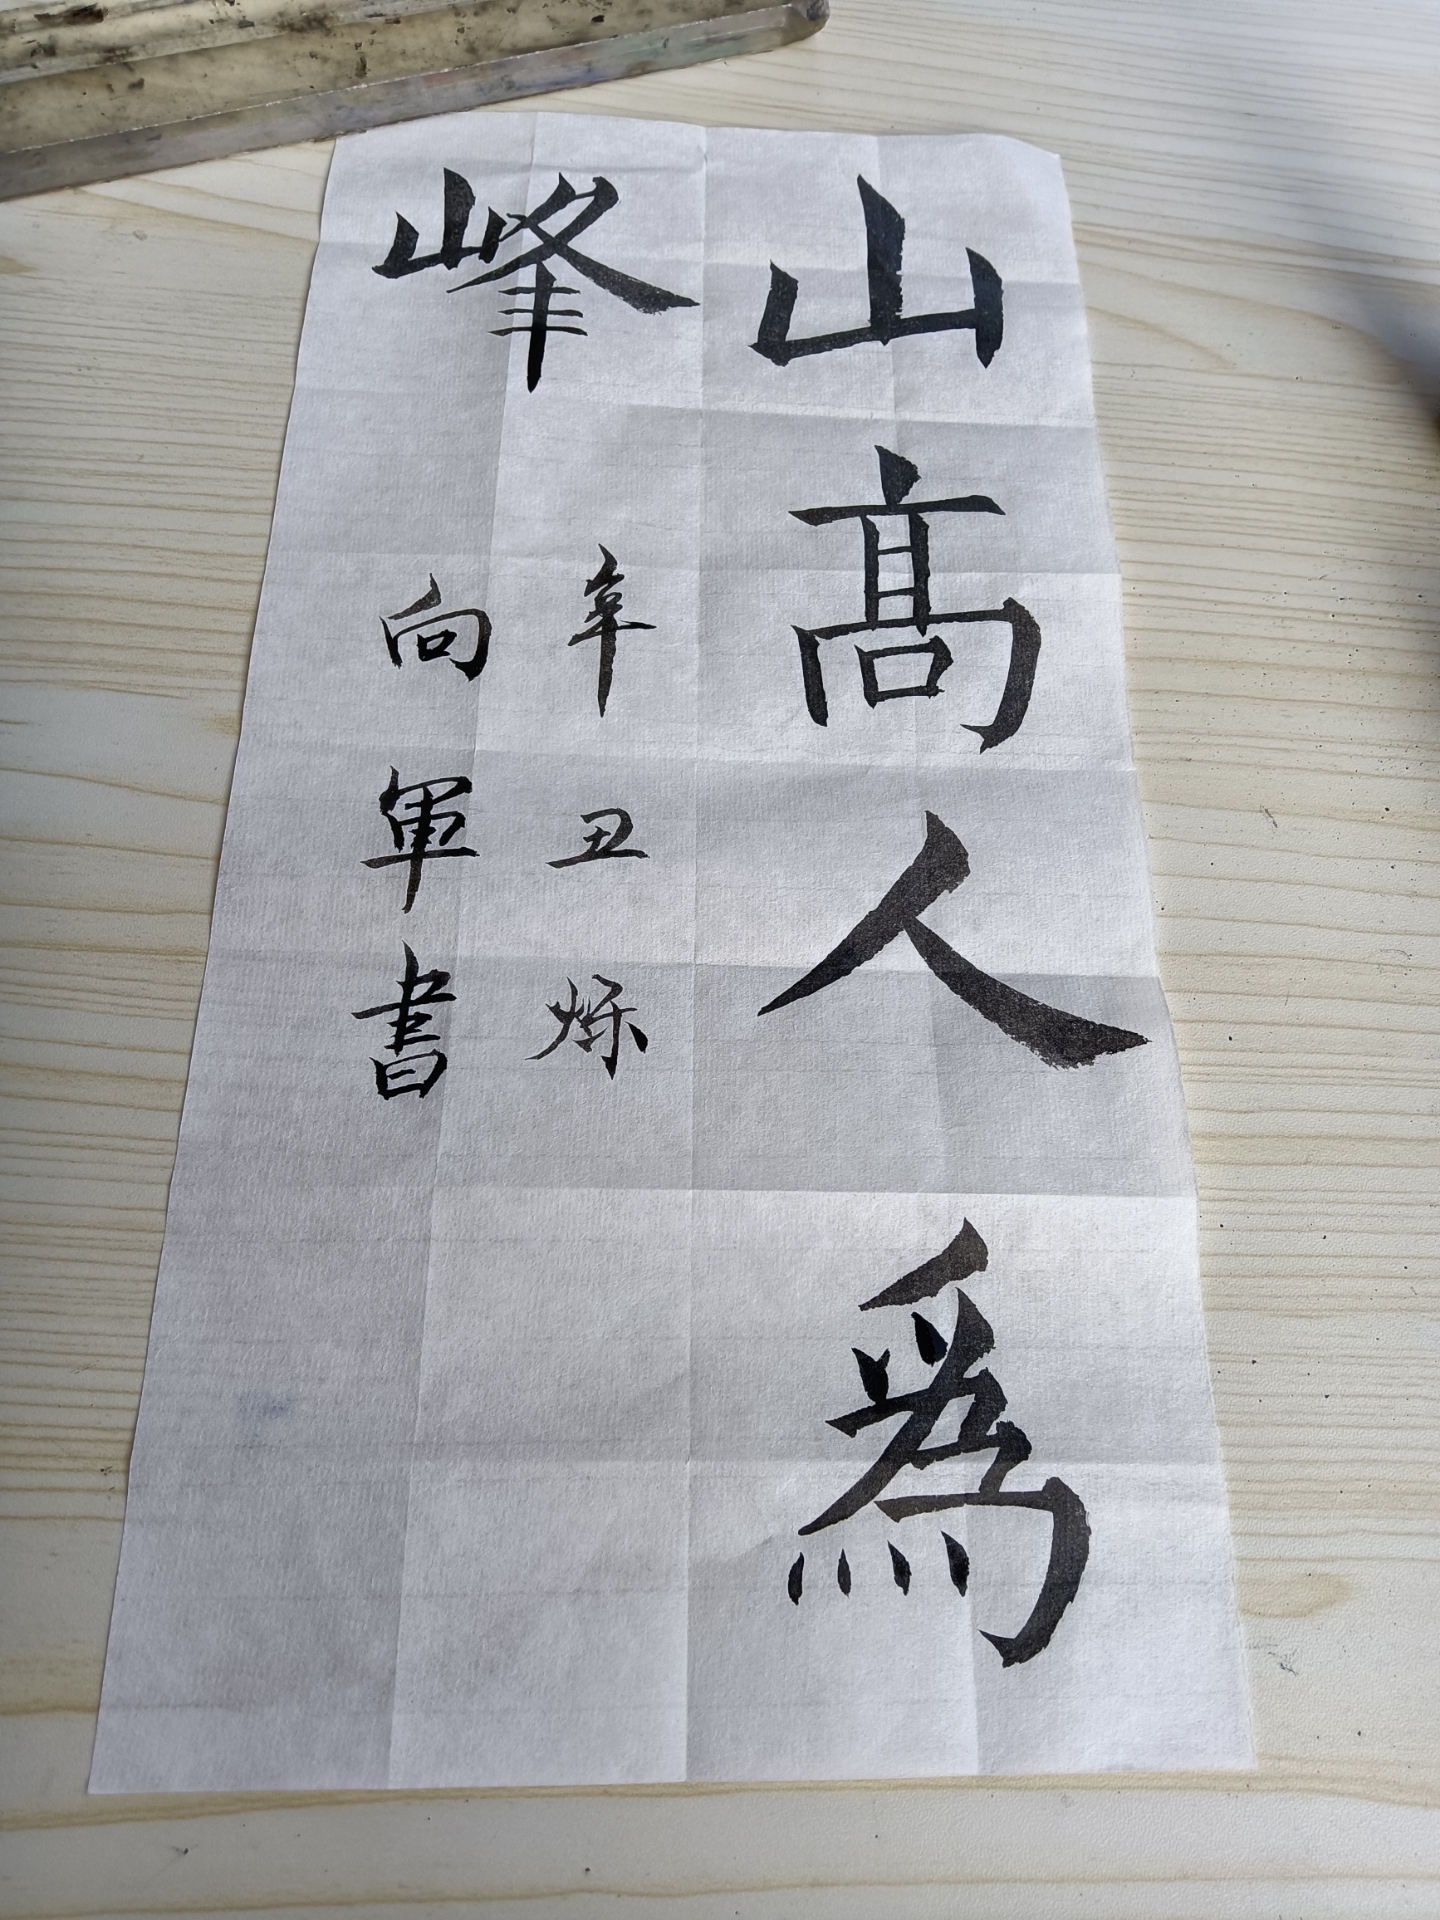 山髙人為
峰
辛丑烁
向軍書